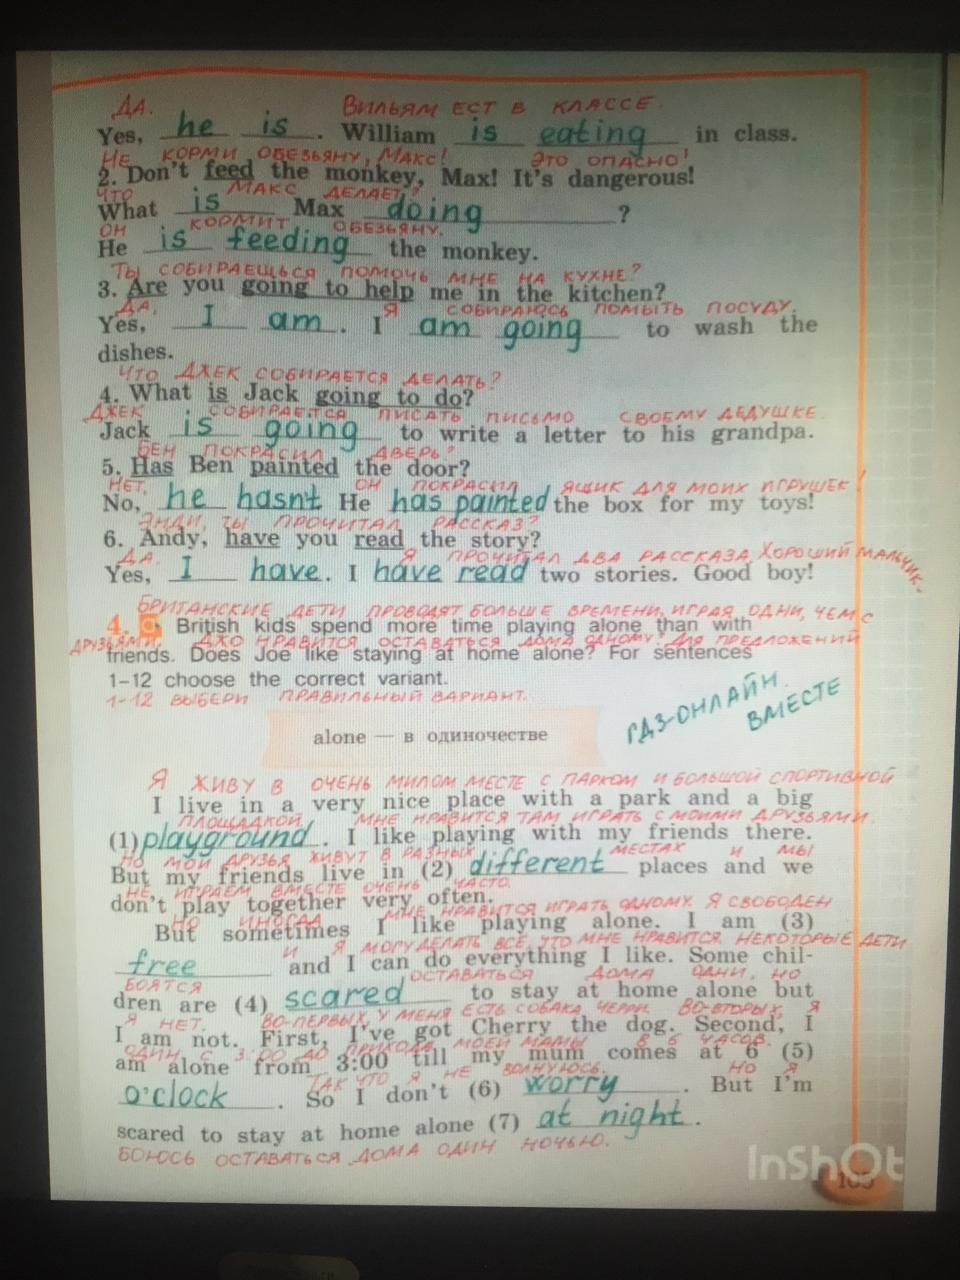 ДА. ВИЛЬЯМ ЕСТ В КЛАССЕ.
Yes, he is. William is eating in class.
НЕ КОРМИ ОБЕЗЬЯНУ, МАКС! ЭТО ОПАСНО!
2. Don't feed the monkey, Max! It's dangerous!
ЧТО МАКС ДЕЛАЕТ?
What is Max doing ?
ОН КОРМИТ ОБЕЗЬЯНУ.
He is feeding the monkey.
ТЫ СОБИРАЕШЬСЯ ПОМОЧЬ МНЕ НА КУХНЕ?
3. Are you going to help me in the kitchen?
ДА. Я СОБИРАЮСЬ ПОМЫТЬ ПОСУДУ.
Yes, I am. I am going to wash the
dishes.
ЧТО ДЖЕК СОБИРАЕТСЯ ДЕЛАТЬ?
4. What is Jack going to do?
ДЖЕК СОБИРАЕТСЯ ПИСАТЬ ПИСЬМО СВОЕМУ ДЕДУШКЕ.
Jack is going to write a letter to his grandpa.
БЕН ПОКРАСИЛ ДВЕРЬ?
5. Has Ben painted the door?
НЕТ. ОН ПОКРАСИЛ ЯЩИК ДЛЯ МОИХ ИГРУШЕК!
No, he hasn't He has painted the box for my toys!
ЭНДИ, ТЫ ПРОЧИТАЛ РАССКАЗ?
6. Andy, have you read the story?
ДА. Я ПРОЧИТАЛ ДВА РАССКАЗА. ХОРОШИЙ МАЛЬЧИК.
Yes, I have. I have read two stories. Good boy!
БРИТАНСКИЕ ДЕТИ ПРОВОДЯТ БОЛЬШЕ ВРЕМЕНИ, ИГРАЯ ОДНИ, ЧЕМ С
4. a. British kids spend more time playing alone than with
ДРУЗЬЯМИ. ДЖО НРАВИТСЯ ОСТАВАТЬСЯ ДОМА ОДНОМУ? ДЛЯ ПРЕДЛОЖЕНИЙ
friends. Does Joe like staying at home alone? For sentences
1–12 choose the correct variant.
1-12 ВЫБЕРИ ПРАВИЛЬНЫЙ ВАРИАНТ.
ГДЗ-ОНЛАЙН.
ВМЕСТЕ
alone — в одиночестве
Я ЖИВУ В ОЧЕНЬ МИЛОМ МЕСТЕ С ПАРКОМ И БОЛЬШОЙ СПОРТИВНОЙ
I live in a very nice place with a park and a big
ПЛОЩАДКОЙ. МНЕ НРАВИТСЯ ТАМ ИГРАТЬ С МОИМИ ДРУЗЬЯМИ.
(1) playground. I like playing with my friends there.
НО МОИ ДРУЗЬЯ ЖИВУТ В РАЗНЫХ МЕСТАХ И МЫ
But my friends live in (2) different places and we
НЕ ИГРАЕМ ВМЕСТЕ ОЧЕНЬ ЧАСТО.
don't play together very often.
НО ИНОГДА МНЕ НРАВИТСЯ ИГРАТЬ ОДНОМУ. Я СВОБОДЕН
But sometimes I like playing alone. I am (3)
И Я МОГУ ДЕЛАТЬ ВСЕ, ЧТО МНЕ НРАВИТСЯ. НЕКОТОРЫЕ ДЕТИ
free and I can do everything I like. Some chil-
БОЯТСЯ ОСТАВАТЬСЯ ДОМА ОДНИ, НО
dren are (4) scared to stay at home alone but
Я НЕТ. ВО-ПЕРВЫХ, У МЕНЯ ЕСТЬ СОБАКА ЧЕРРИ. ВО-ВТОРЫХ, Я
I am not. First, I've got Cherry the dog. Second, I
ОДИН С 3:00 ДО ПРИХОДА МОЕЙ МАМЫ В 6 ЧАСОВ.
am alone from 3:00 till my mum comes at 6 (5)
ТАК ЧТО Я НЕ ВОЛНУЮСЬ. НО Я
o'clock. So I don't (6) worry. But I'm
scared to stay at home alone (7) at night.
БОЮСЬ ОСТАВАТЬСЯ ДОМА ОДИН НОЧЬЮ.
InShOt
105